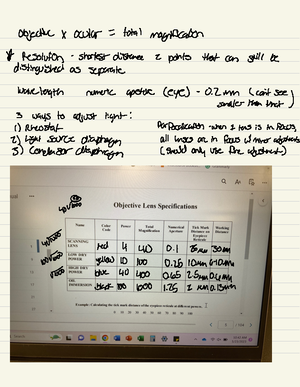 objective x ocular = total magnification
* Resolution - shortest distance 2 points that can still be
distinguished as separate
wavelength numeric apature (eye) - 0.2mm (can't see
smaller than that)
3 ways to adjust light:
1) Rheostat
2) Light source diaphragm
3) Condenser diaphragm
Parfocalization - when 1 lens is in focus,
all lenses are in focus w/ minor adjustments
(should only use fine adjustment)
Objective Lens Specifications
Name Color Code Power Total Magnification Numerical Aperture Tick Mark Distance on Eyepiece Reticule Working Distance
SCANNING LENS red 4 40 0.1 25um 30mm
LOW DRY POWER yellow 10 100 0.25 10um 6.10mm
HIGH DRY POWER blue 40 400 0.65 2.5um
OIL IMMERSION 100 1000 1.25 1um 0.13mm
Example - Calculating the tick mark distance of the eyepiece reticule at different powers.
0 10 20 30 40 50 60 70 80 90 100